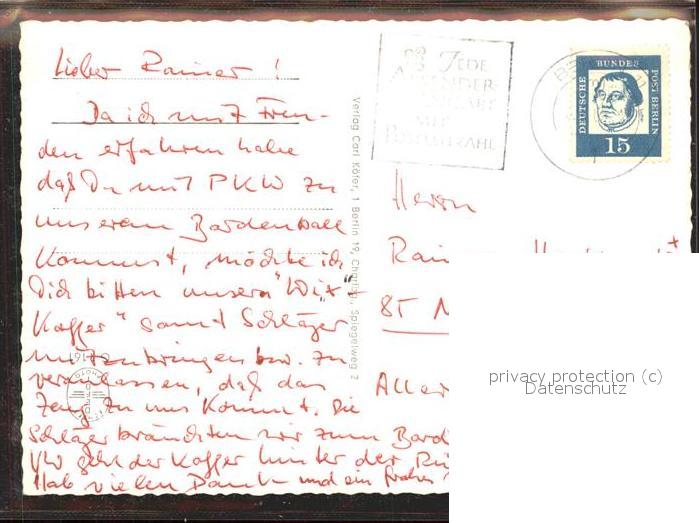 Lieber Rainer!
Da ich mit Freun-
den erfahren habe
daß Du mit PKW zu
unserem Bardenball
kommst, möchte ich
Dich bitten unsern
Koffer" samt Schläger
mitzubringen bzw. zu
veranlassen, daß das
Zeug zu uns kommt. Die
Schläger bräuchten wir zum Bard
geht der Koffer hinter der
Hab vielen Dank und ein frohes
Verlag Carl Köfer, 1 Berlin 19, Charlbg., Spiegelweg 2
JEDE
MIT
POSTLEITZAHL
DEUTSCHE BUNDES POST BERLIN
15
Herrn
85
privacy protection (c)
Datenschutz